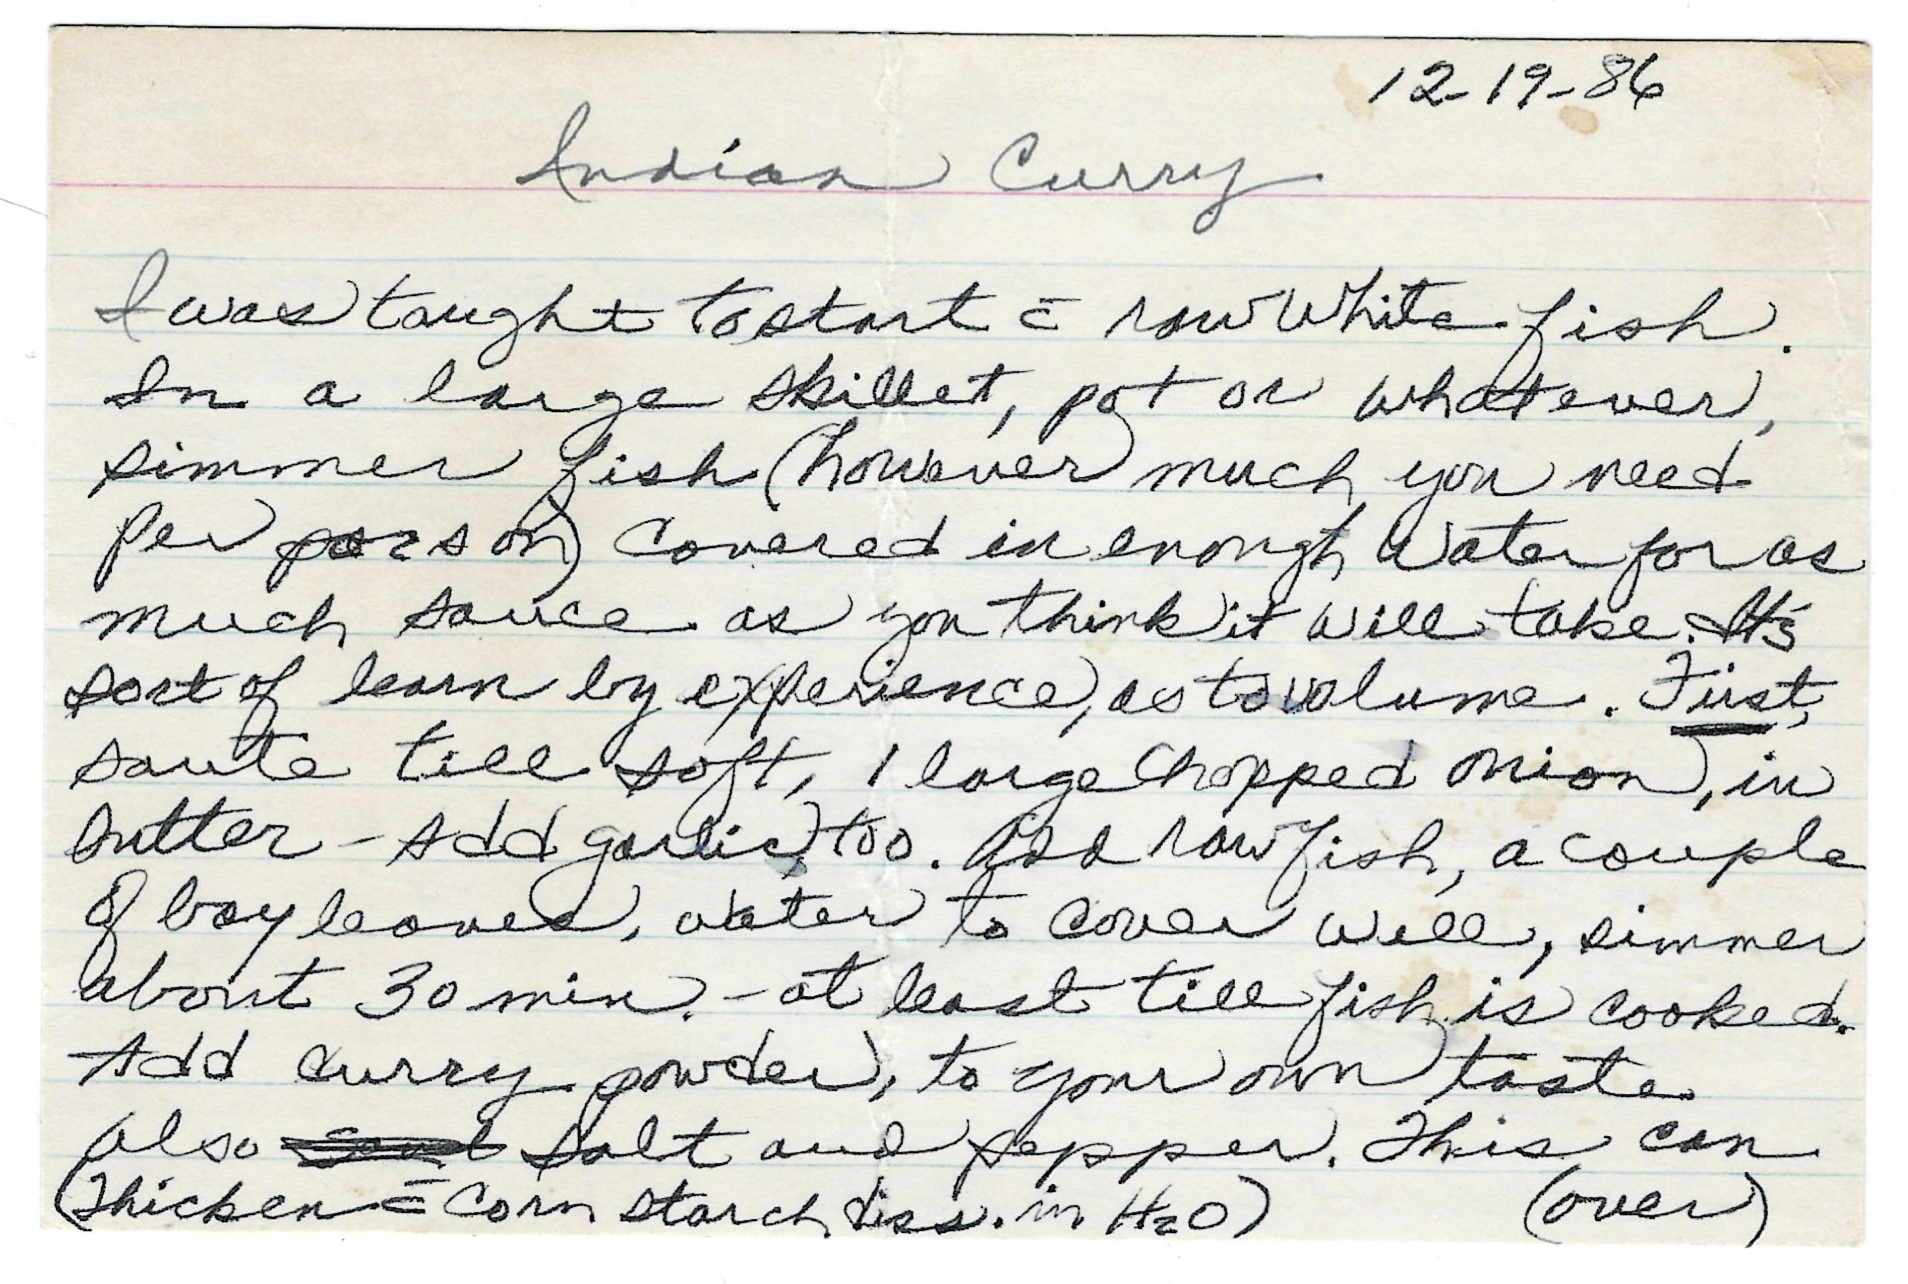 12-19-86
Indian Curry
I was taught to start c̄ raw white fish.
In a large skillet, pot or whatever,
simmer fish (however much you need
per person) covered in enough water for as
much sauce as you think it will take. It's
sort of learn by experience, as to volume. First,
saute till soft, 1 large chopped onion, in
butter - add garlic, too. Add raw fish, a couple
of bay leaves, water to cover well, simmer
about 30 min. - at least till fish is cooked.
Add curry powder, to your own taste.
Also salt and pepper. This can
(Thicken c̄ corn starch diss. in H2O) (over)